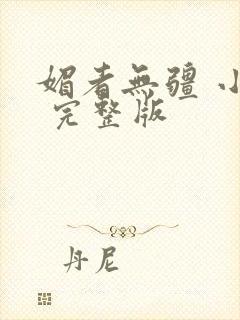 媚者無疆 小
完整版
丹尼